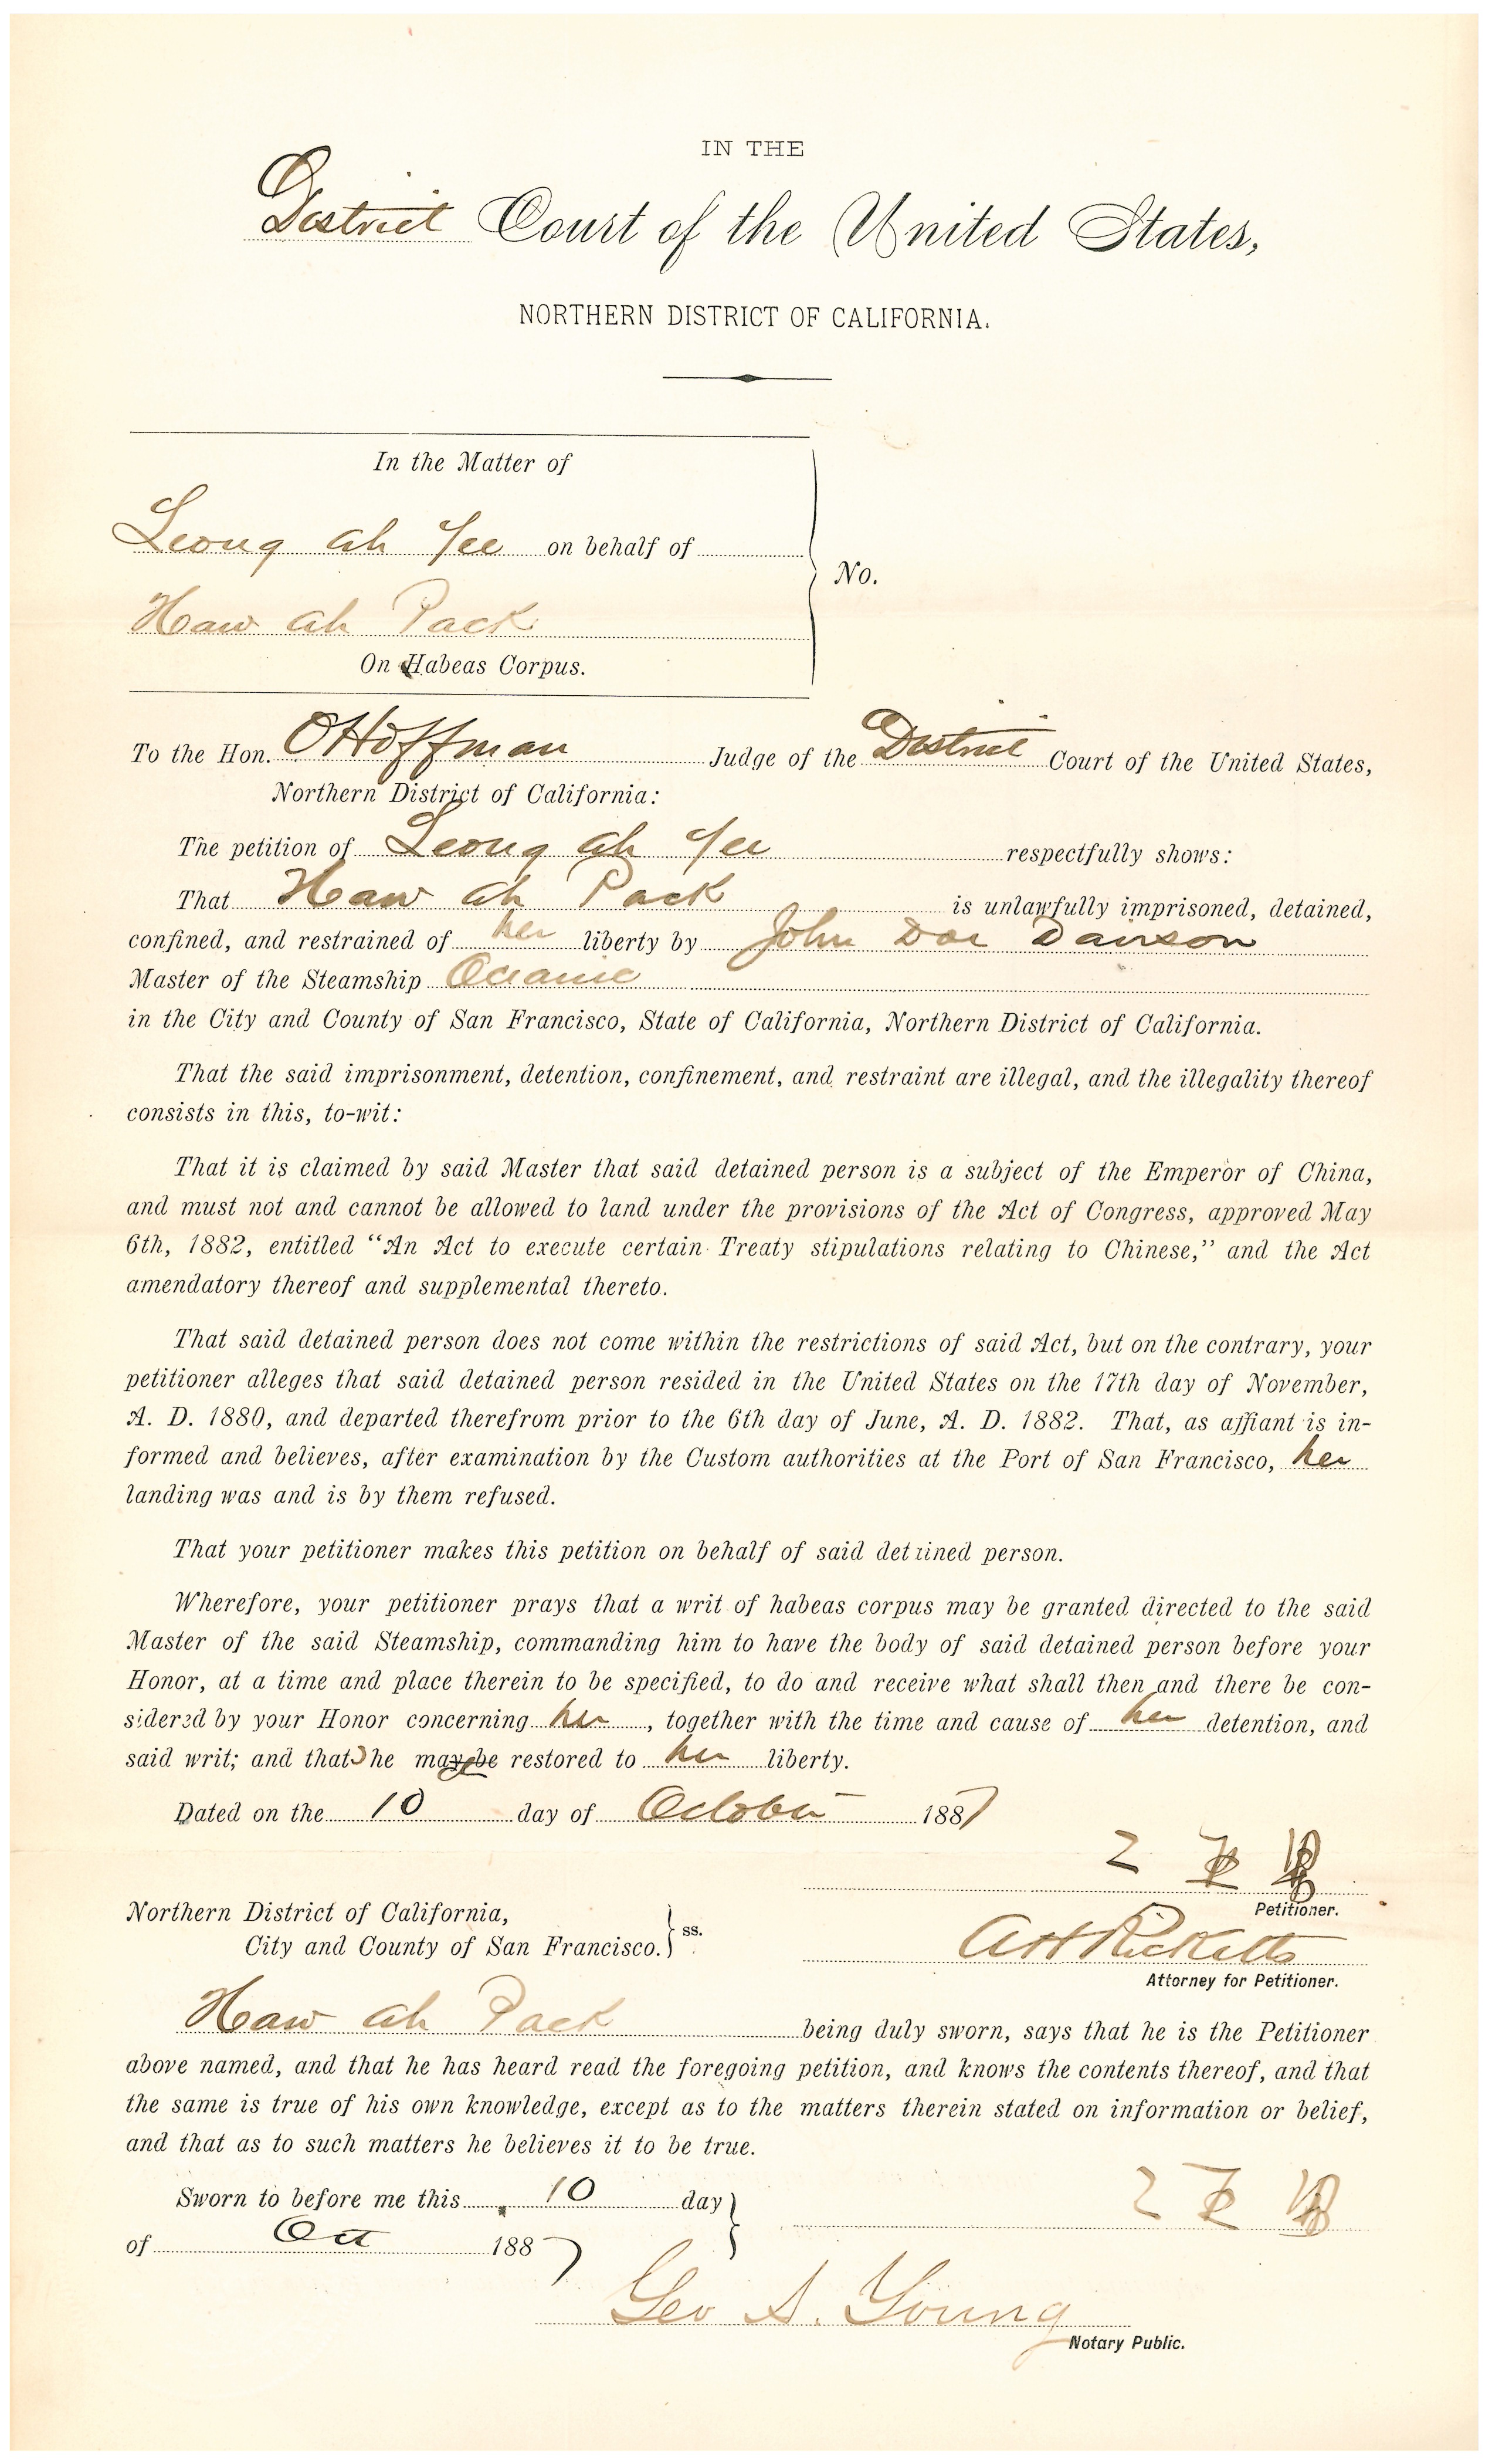 IN THE
District Court of the United States,
NORTHERN DISTRICT OF CALIFORNIA.
In the Matter of
Leong Ah Yee on behalf of
Haw Ah Pack
On Habeas Corpus.
No.
To the Hon. O Hoffman Judge of the District Court of the United States,
Northern District of California:
The petition of Leong Ah Yee respectfully shows:
That Haw Ah Pack is unlawfully imprisoned, detained,
confined, and restrained of her liberty by John Doe Davison
Master of the Steamship Oceanic
in the City and County of San Francisco, State of California, Northern District of California.
That the said imprisonment, detention, confinement, and restraint are illegal, and the illegality thereof
consists in this, to-wit:
That it is claimed by said Master that said detained person is a subject of the Emperor of China,
and must not and cannot be allowed to land under the provisions of the Act of Congress, approved May
6th, 1882, entitled "An Act to execute certain Treaty stipulations relating to Chinese," and the Act
amendatory thereof and supplemental thereto.
That said detained person does not come within the restrictions of said Act, but on the contrary, your
petitioner alleges that said detained person resided in the United States on the 17th day of November,
A. D. 1880, and departed therefrom prior to the 6th day of June, A. D. 1882. That, as affiant is in-
formed and believes, after examination by the Custom authorities at the Port of San Francisco, her
landing was and is by them refused.
That your petitioner makes this petition on behalf of said detained person.
Wherefore, your petitioner prays that a writ of habeas corpus may be granted directed to the said
Master of the said Steamship, commanding him to have the body of said detained person before your
Honor, at a time and place therein to be specified, to do and receive what shall then and there be con-
sidered by your Honor concerning her, together with the time and cause of her detention, and
said writ; and that she may be restored to her liberty.
Dated on the 10 day of October 1887
Petitioner.
Northern District of California,
City and County of San Francisco. ss.
A H Ricketts
Attorney for Petitioner.
Haw Ah Pack being duly sworn, says that he is the Petitioner
above named, and that he has heard read the foregoing petition, and knows the contents thereof, and that
the same is true of his own knowledge, except as to the matters therein stated on information or belief,
and that as to such matters he believes it to be true.
Sworn to before me this 10 day
of Oct 1887
Geo S. Young
Notary Public.